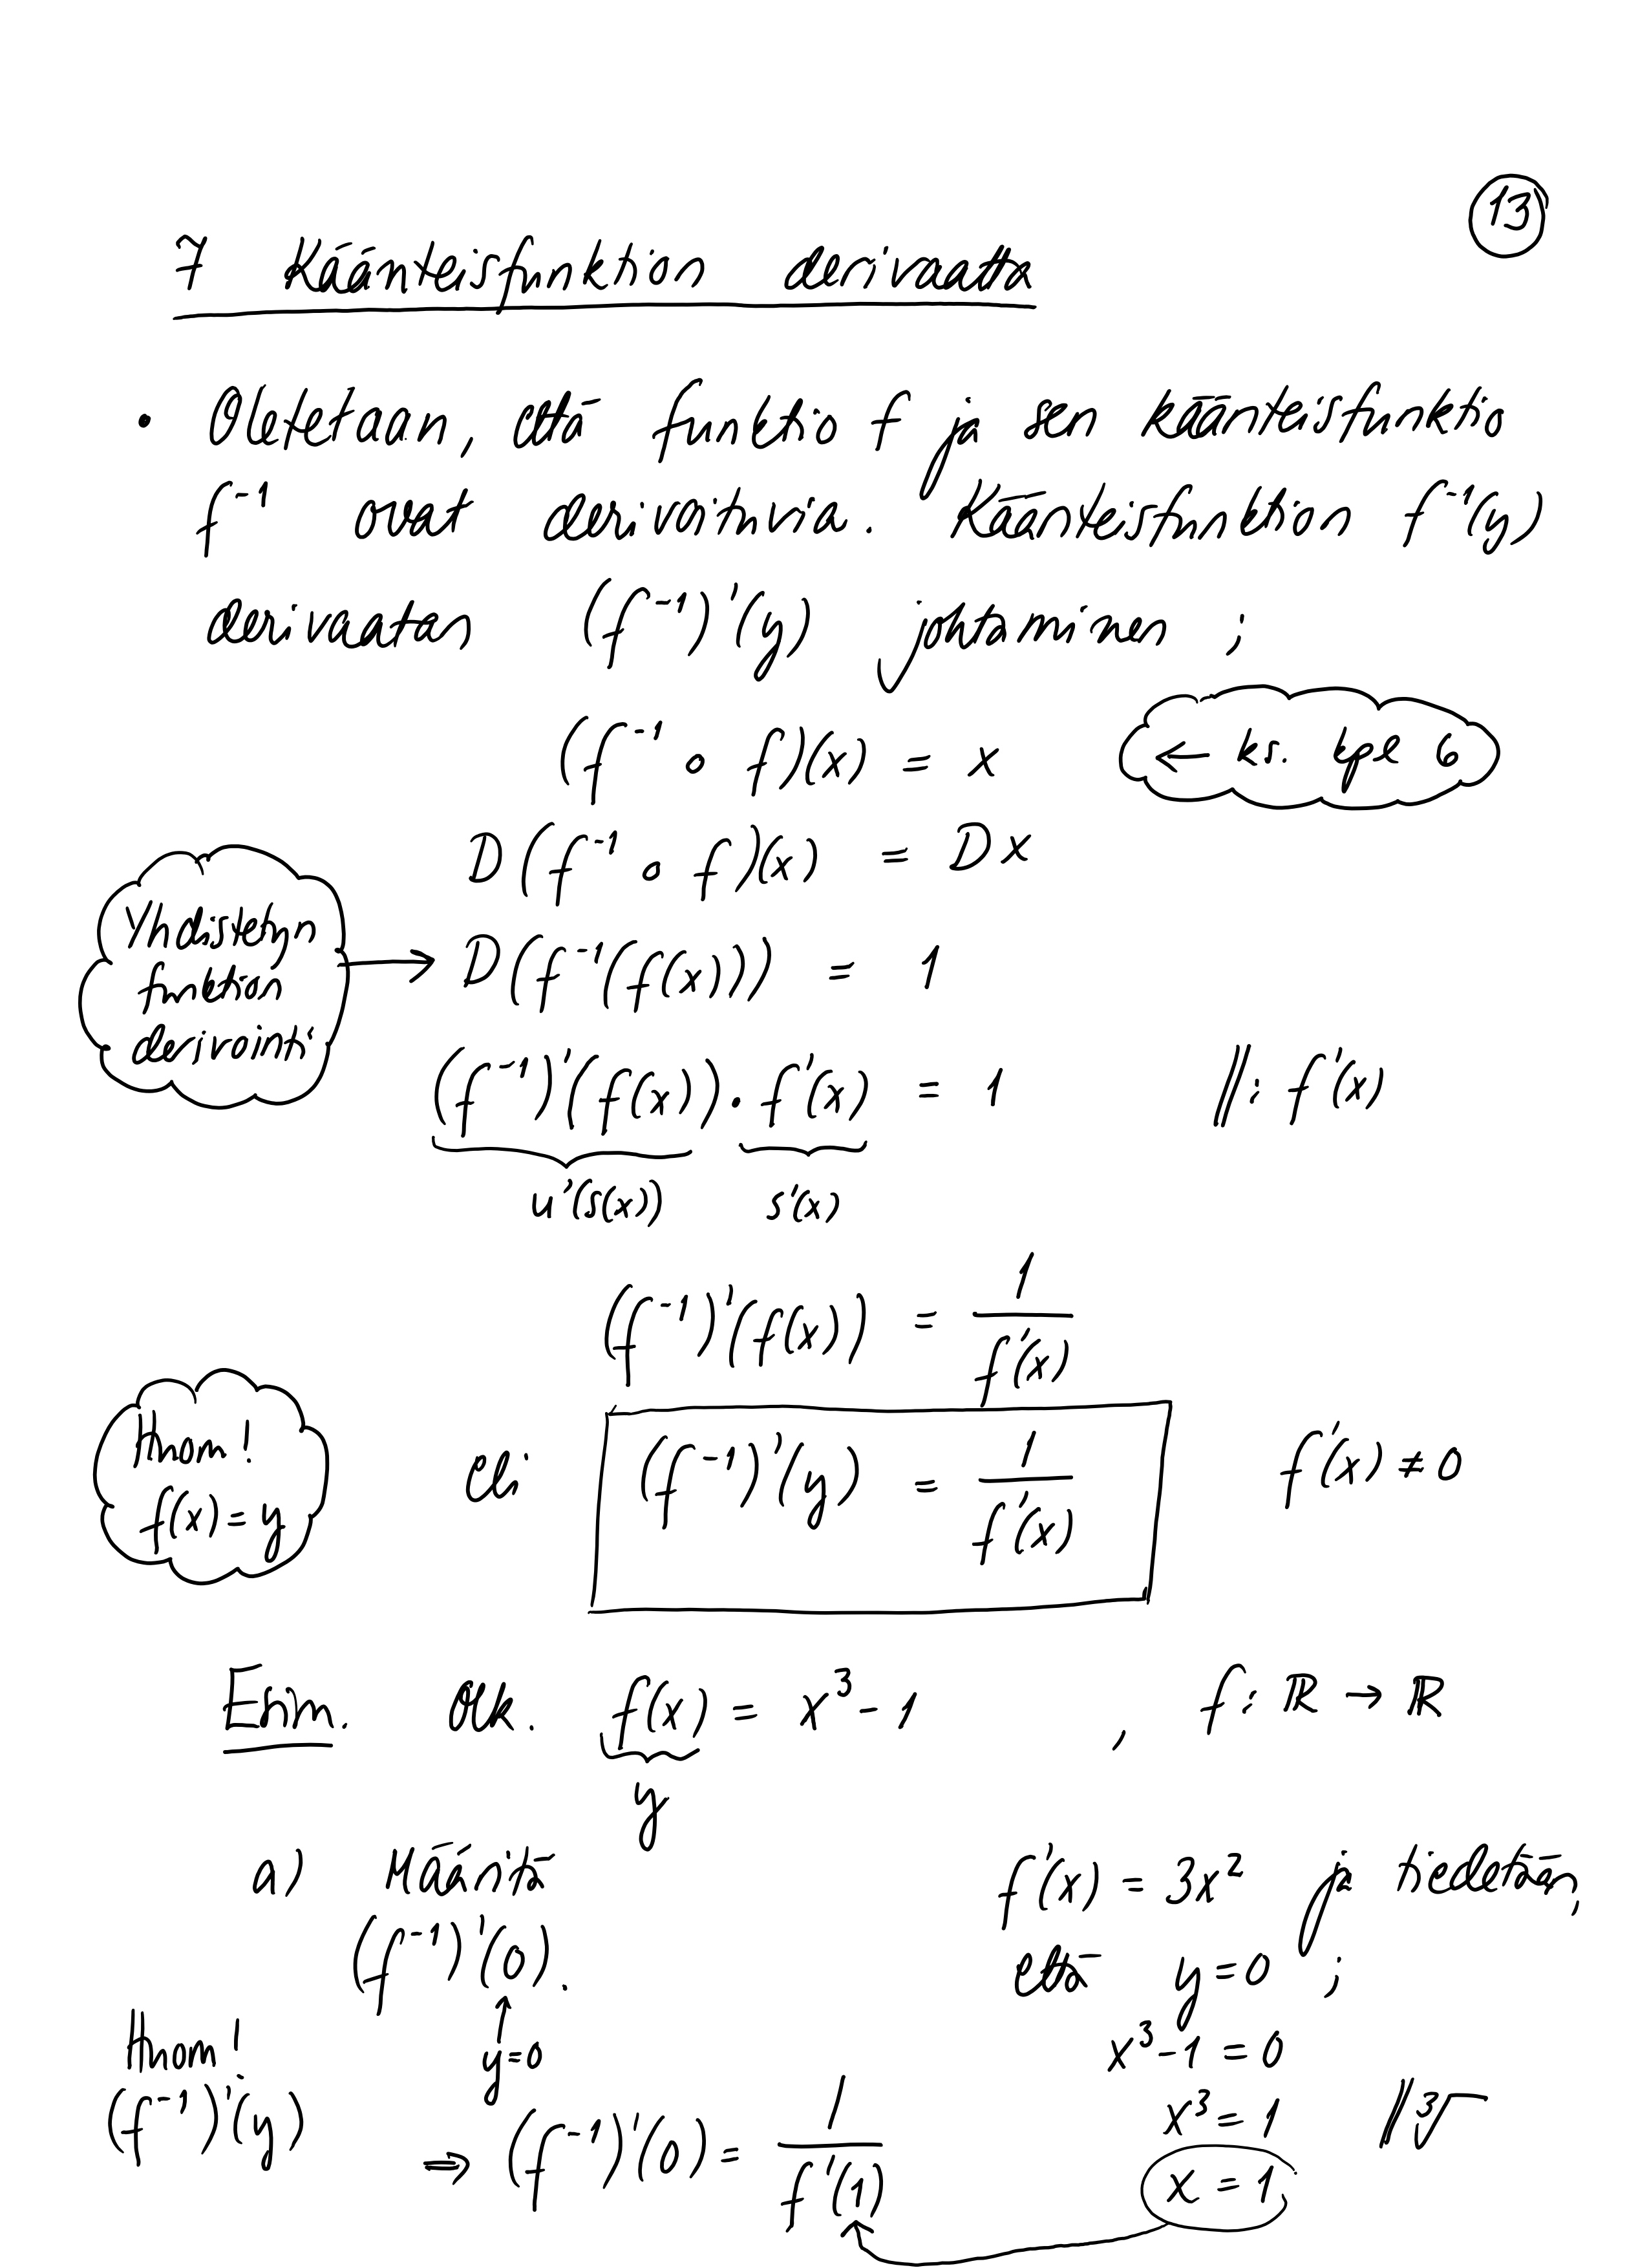 13
7 Käänteisfunktion derivaatta
• Oletetaan, että funktio f ja sen käänteisfunktio
f⁻¹ ovat derivoituvia. Käänteisfunktion f⁻¹(y)
derivaatan (f⁻¹)'(y) johtaminen ;
(f⁻¹ ∘ f)(x) = x
← ks. kpl 6
D(f⁻¹ ∘ f)(x) = Dx
Yhdistetyn
funktion
derivointi
→ D(f⁻¹(f(x))) = 1
(f⁻¹)'(f(x)) · f'(x) = 1 ‖: f'(x)
u'(s(x)) s'(x)
(f⁻¹)'(f(x)) = 1/f'(x)
Huom!
f(x) = y
eli (f⁻¹)'(y) = 1/f'(x) f'(x) ≠ 0
Esim. Olk. f(x) = x³ - 1 , f: ℝ → ℝ
y
a) Määritä
(f⁻¹)'(0).
y=0
f'(x) = 3x² ja tiedetään,
että y = 0 ;
x³ - 1 = 0
x³ = 1 ‖ ³√
x = 1
Huom!
(f⁻¹)'(y)
⇒ (f⁻¹)'(0) = 1/f'(1)